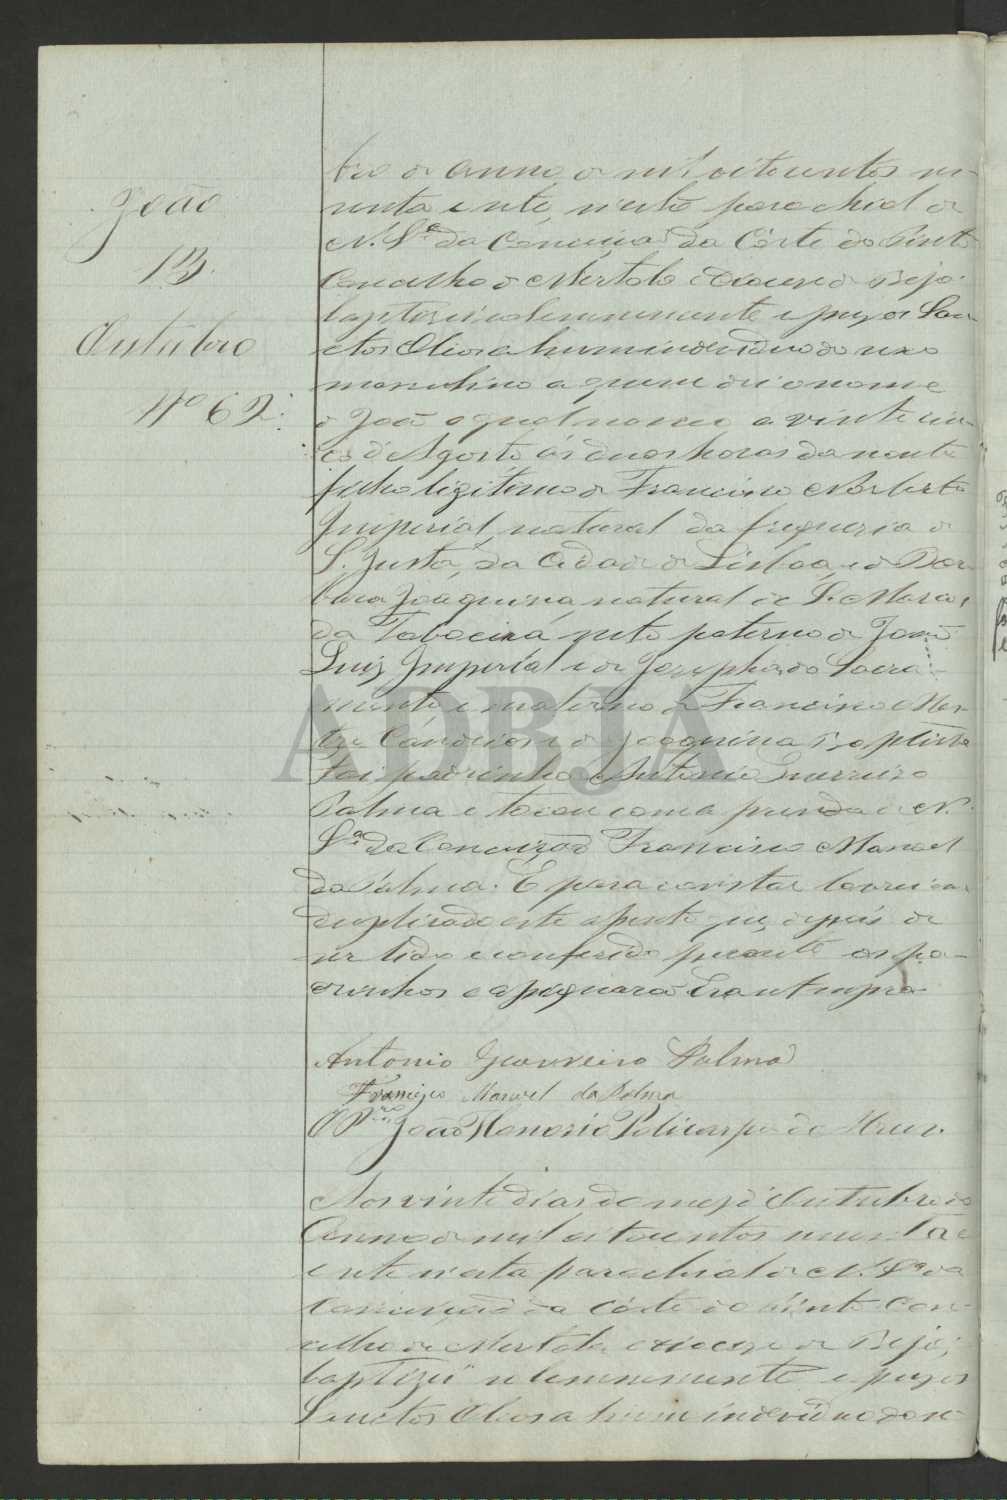 João
13
Outubro
Nº 62
bro do anno de mil oitocentos no-
venta e sete, n'esta parochial de
N. Sª da Conceição da Côrte do Pinto
Concelho de Mertola e Diocese de Beja
baptizei solemnemente e puz os San-
ctos Oleos a hum individuo do sexo
masculino a quem dei o nome
de João o qual nasceu a vinte cin-
co d'Agosto ás duas horas da noute
filho legitimo de Francisco Norberto
Imperial, natural da freguezia de
S. Justa, da Cidade de Lisboa, e de Bar-
bara Joaquina natural de S. Marcos
da Taboeira neto paterno de João
Luiz Imperial e de Josepha do Sacra-
mento, e materno de Francisco Mes-
tre Candeias e de Joaquina Baptista
Foi padrinho Antonio Guerreiro
Palma e tocou com a prenda de N.
Sª da Conceição Francisco Manoel
da Palma. E para constar lavrei em
duplicado este assento que, depois de
ser lido e conferido perante os pa-
drinhos o assignarão Era ut supra
Antonio Guerreiro Palma
Francisco Manoel da Palma
O P. João Honorio Policarpo de
Aos vinte dias do mez d'Outubro do
Anno de mil oitocentos noventa e
e sete n'esta parochial de N. Sª da
Conceição da Côrte do Pinto Con-
celho de Mertola e Diocese de Beja,
baptizei solemnemente e puz os
Sanctos Oleos a hum individuo do se-
ADBJA